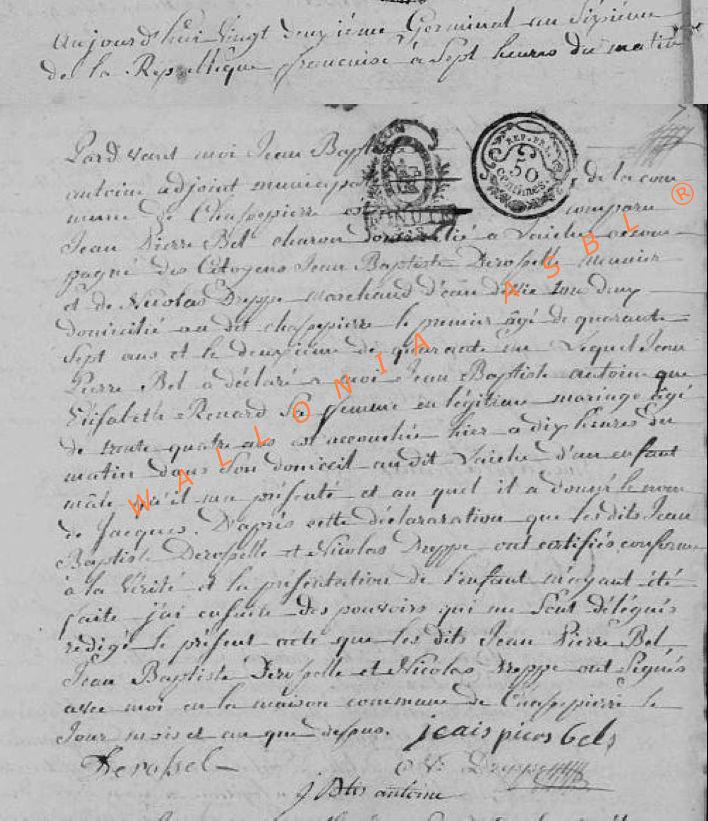 Aujourd'hui vingt deuxième Germinal an Sixième
de la République française à Sept heures du matin
Pardevant moi Jean Bapt
antoine adjoint municipal de la com
mune de Chassepierre comparu
REP. FRA.
50
centimes
Jean Pierre Bel charon domicilié a Laiche accom
pagné des Citoyens Jean Baptiste Derosselle munier
et de Nicolas Dreppe marchand d'eau de vie tous deux
domicilié au dit chassepierre le premier âgé de quarante
Sept ans et le deuxième de quarante un Lequel Jean
Pierre Bel a déclaré a moi Jean Baptiste antoine que
Elisabeth Renard Sa femme en légitime mariage âgé
de trente quatre ans est accouchée hier a dix heures du
matin dans Son domicil au dit Laiche d'un enfant
mâle qu'il ma présenté et au quel il a donné le nom
de Jacques. D'après cette déclararation que les dits Jean
Baptiste Derosselle et Nicolas Dreppe ont certifiés conforme
à la Vérité et la présentation de l'enfant m'ayant été
faite j'ai ensuite des pouvoirs qui me Sont délégués
rédigé le présent acte que les dits Jean Pierre Bel
Jean Baptiste Derosselle et Nicolas Dreppe ont Signés
avec moi en la maison commune de Chassepierre le
Jour mois et an que dessus. jeais piers bels
Derossel N. Dreppe
J Bte antoine
WALLONIA ASBL ®